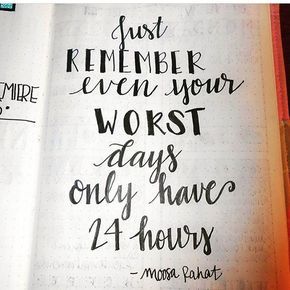 Just
REMEMBER
even your
WORST
days
only have
24 hours
- Moosa Rahat